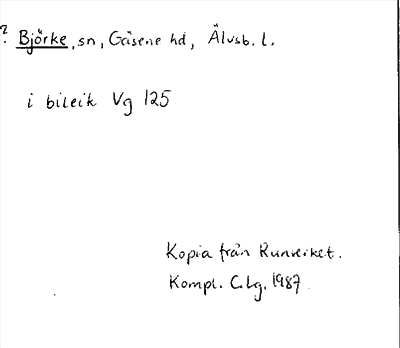 ? Björke, sn, Gäsene hd, Älvsb. l.
i bileik Vg 125
Kopia från Runverket.
Kompl. C.Lg. 1987